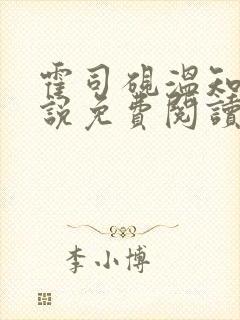 霍司硯溫知
說免費閱讀
李小博